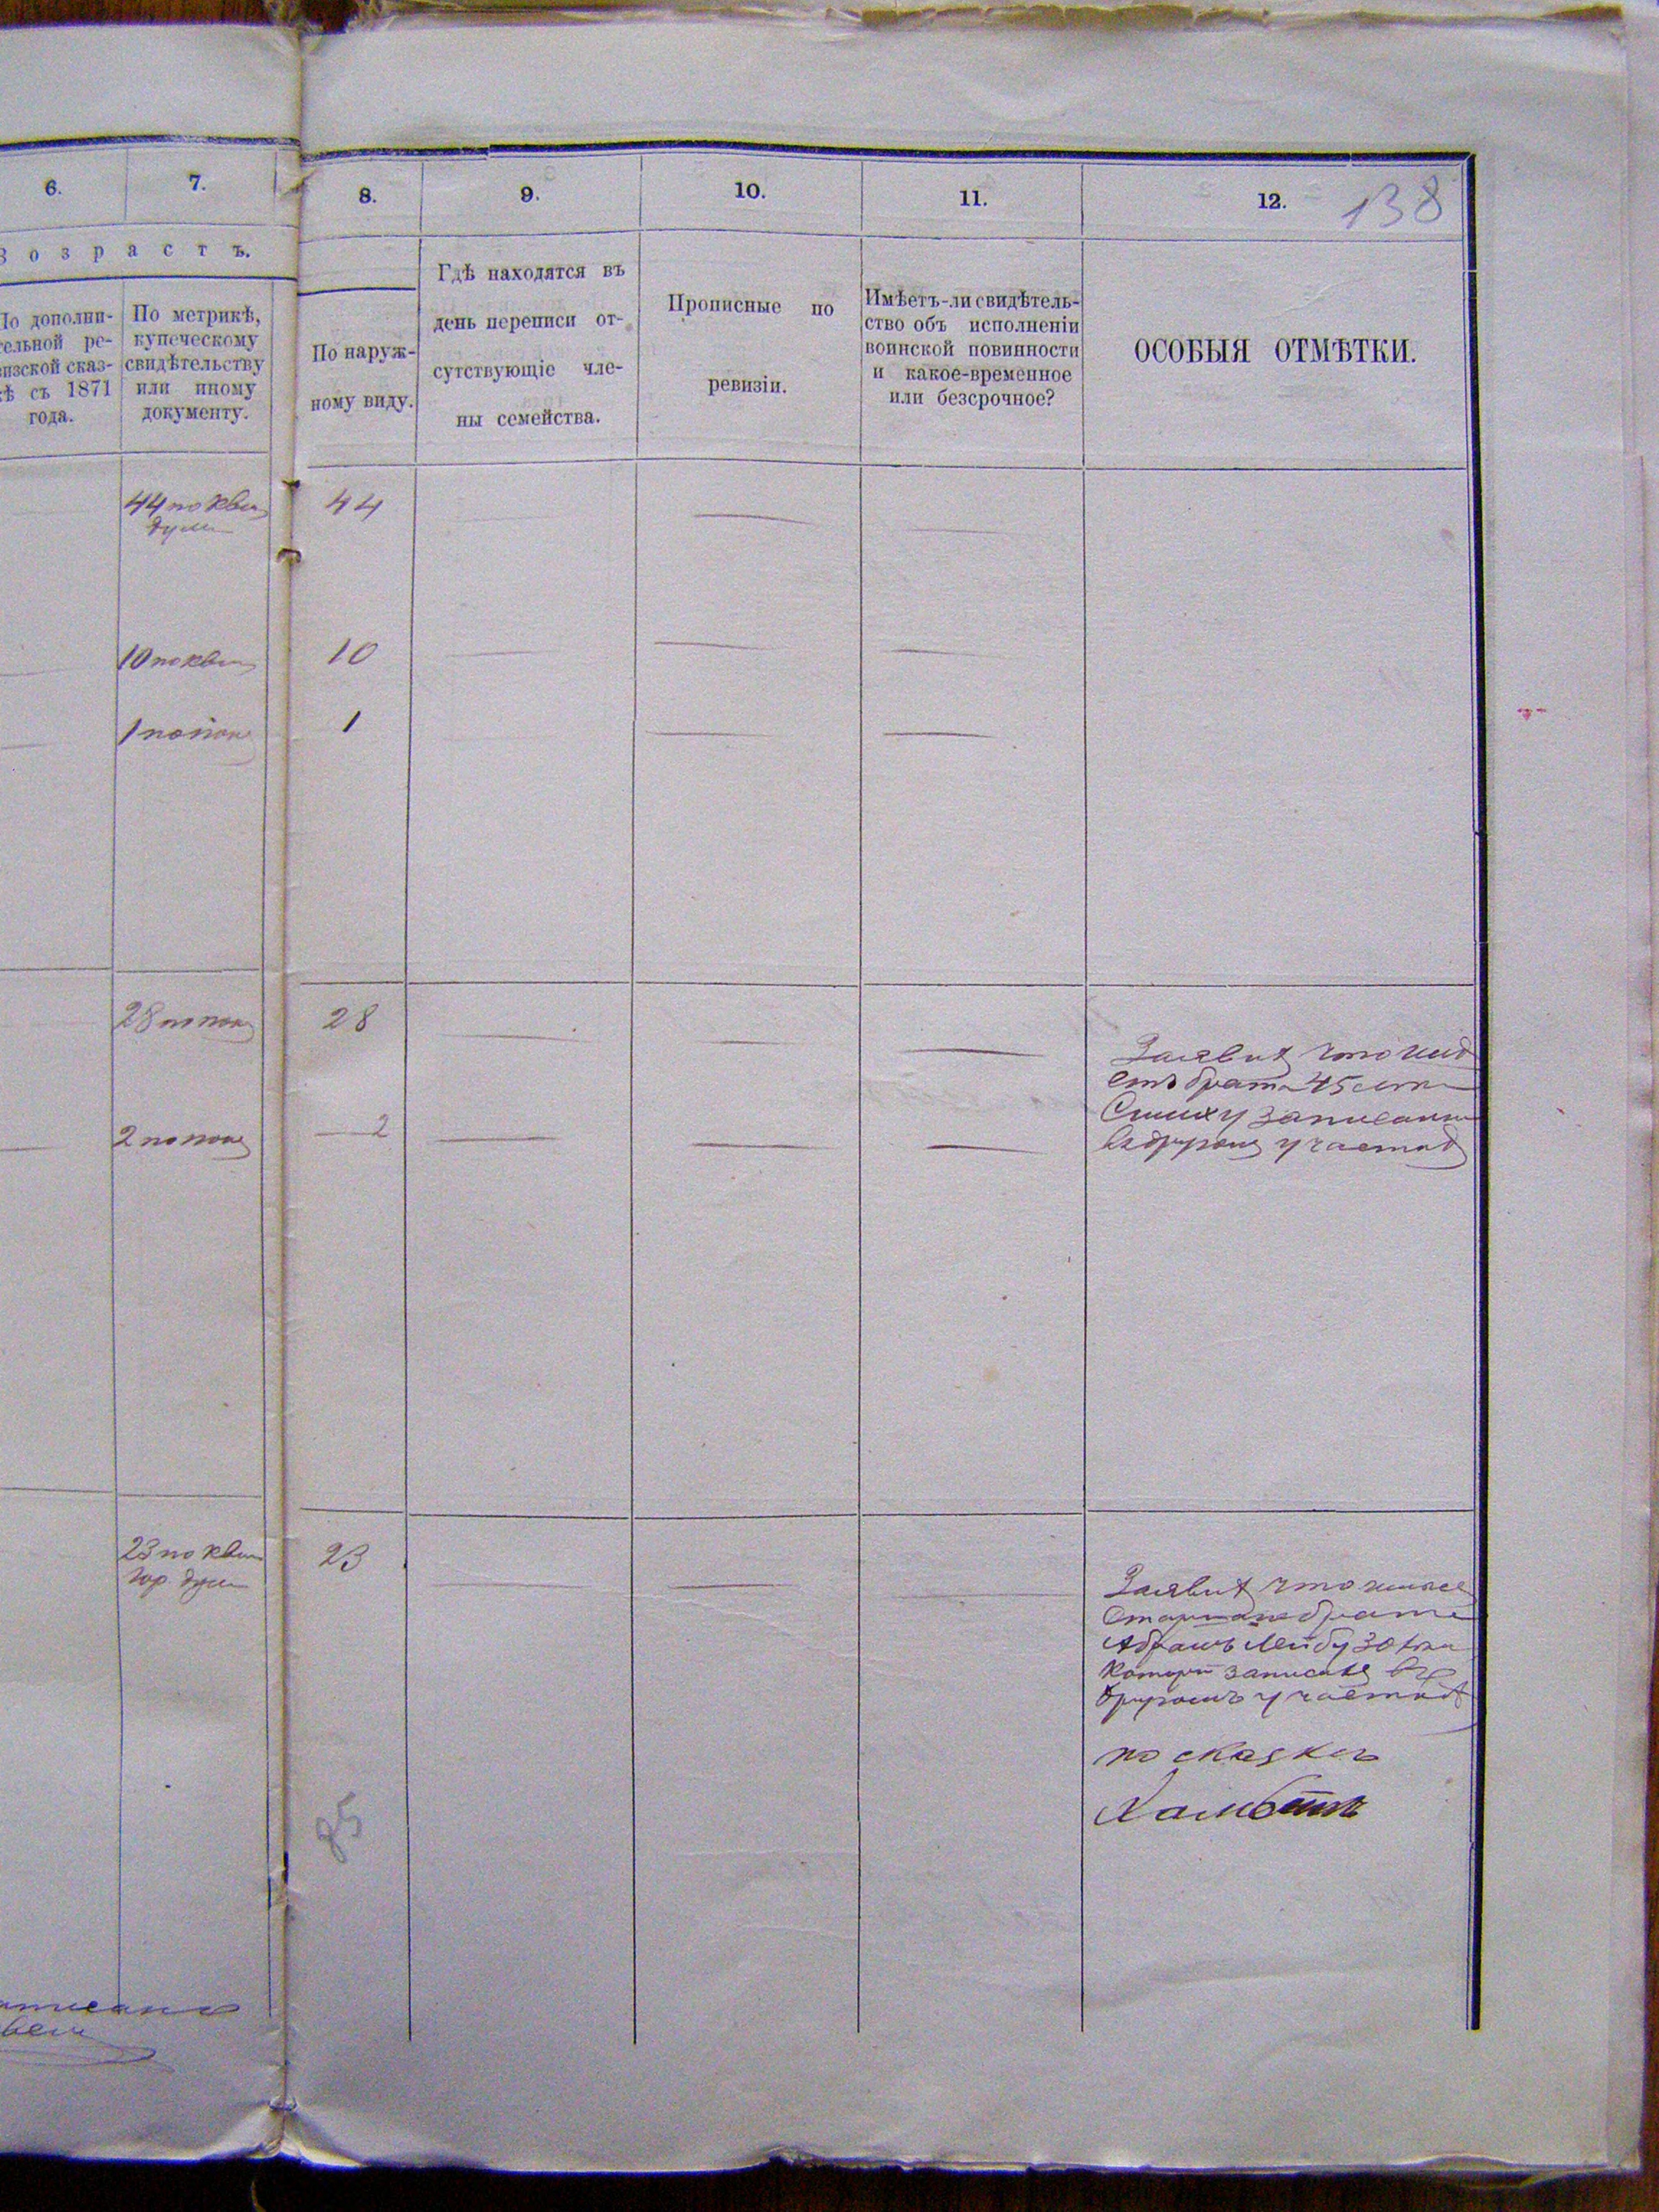 6.
7.
8.
9.
10.
11.
12.
138
В о з р а с т ъ.
По дополни-
тельной ре-
визской сказ-
кѣ съ 1871
года.
По метрикѣ,
купеческому
свидѣтельству
или иному
документу.
По наруж-
ному виду.
Гдѣ находятся въ
день переписи от-
сутствующіе чле-
ны семейства.
Прописные по
ревизіи.
Имѣетъ-ли свидѣтель-
ство объ исполненіи
воинской повинности
и какое-временное
или безсрочное?
ОСОБЫЯ ОТМѢТКИ.
44 по кви
думы
44
10 по кви
10
1 по пок
1
28 по пок
28
2 по пок
2
Заявил что
есть брата 45 лет
записан
в другом участке
23 по кви
гор. думы
23
Заявил что имѣет
брата
Абрамъ Лейбу 30 лет
который записан въ
другомъ участкѣ
по сказке
85